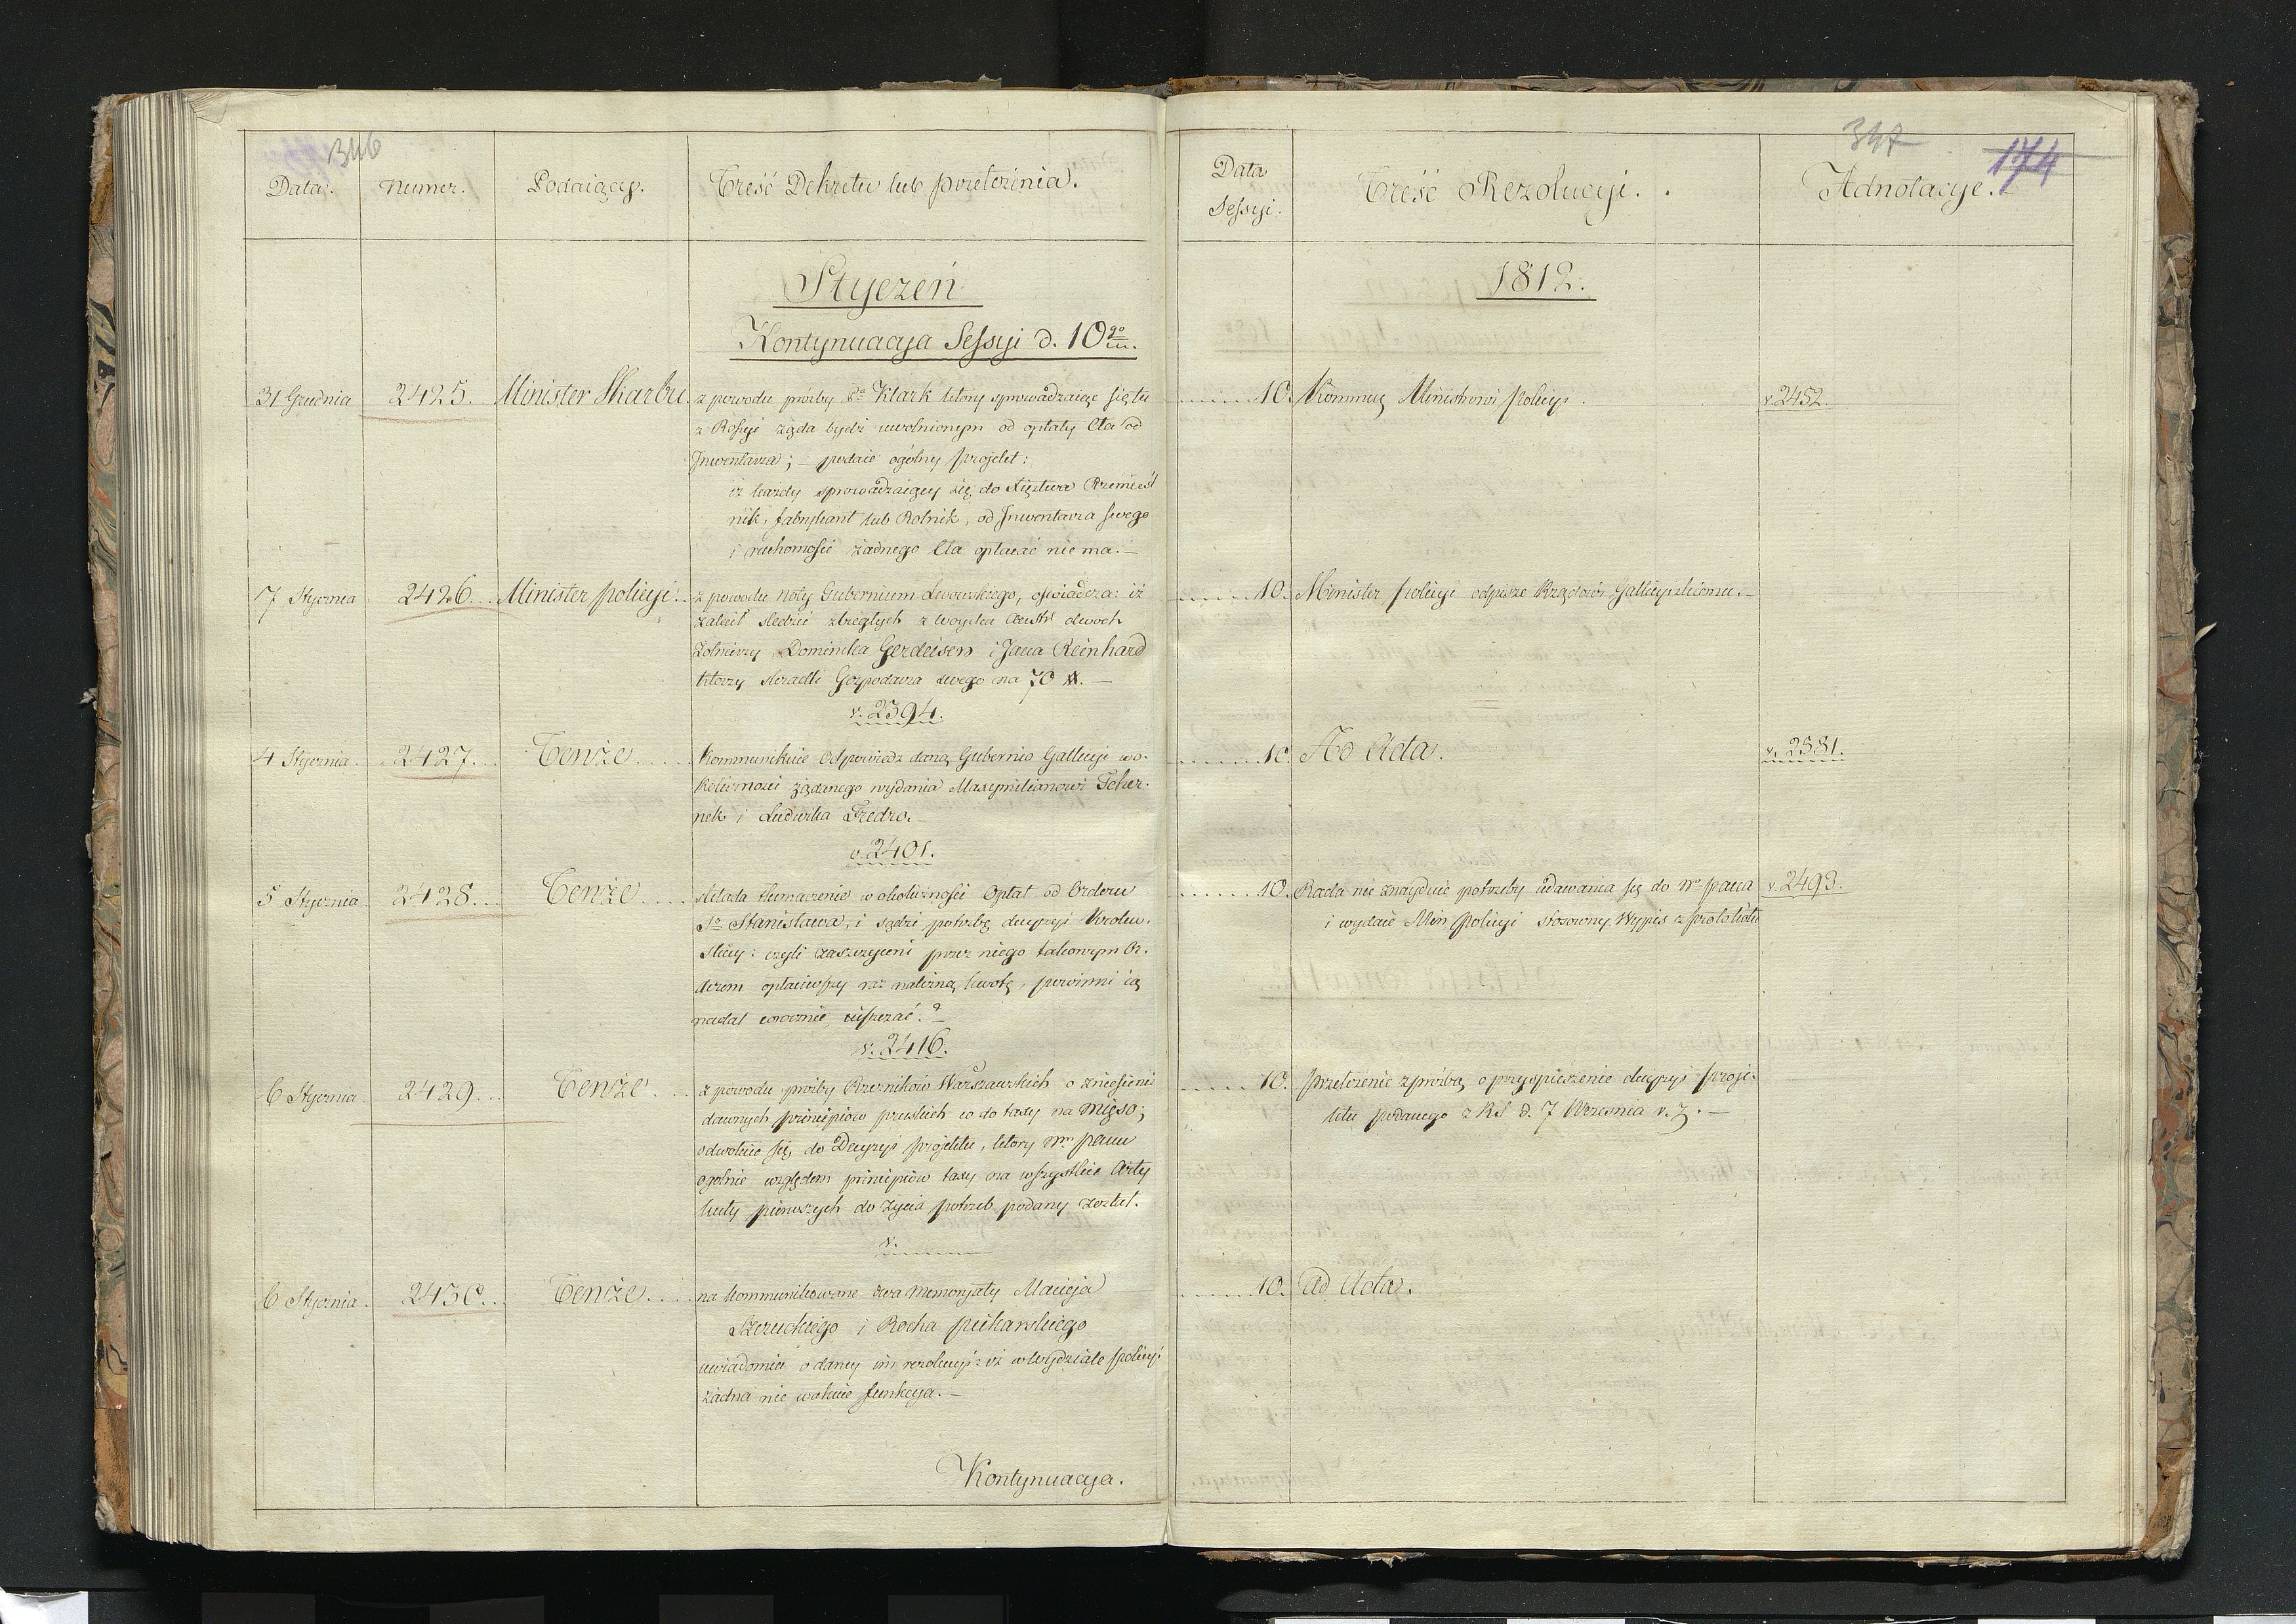 346
Data.
Numer.
Podaiący.
Treść Dekretu lub przełożenia.
Styczeń
Kontynuacya Sessyi d. 10go
31 Grudnia 2425. Minister Skarbu.
z powodu proźby Klark ktory sprowadzaiąc się tu
z Rossyi żąda bydź uwolnionym od opłaty Cła od
Inwentarza; – podaie ogólny projekt:
iż każdy sprowadzaiący się do Xięztwa Rzemieśl
nik, fabrykant lub Rolnik, od Inwentarza swego
i ruchomości żadnego Cła opłacać nie ma. –
7 Stycznia 2426... Minister policyi...
z powodu Noty Gubernium Lwowskiego, oświadcza: iż
zalecił sledzić zbiegłych z woyska Austr dwoch
Żołnierzy, Dominika Gerdeisen i Jana Reinhard
ktorzy skradli Gospodarza swego na 70 #. –
v. 2394.
4 Stycznia. 2427... Tenże.....
Kommunikuie Odpowiedz daną Gubernio Gallicyi wo-
koliczności żądanego wydania Maxymilianowi Tcher-
nek i Ludwika Fredro. –
v. 2401.
5 Stycznia. 2428... Tenże....
składa tłumaczenie w okoliczności Opłat od Orderu
So Stanisława, i sądzi potrzbę decyzyi Krolew.
skiey: czyli zaszczyceni przez niego takowym Or.
derem opłaciwszy raz należną kwotę, powinni ią
nadal corocznie, uiszczać.? –
v. 2416.
6 Stycznia. 2429... Tenże....
z powodu proźby Rzezników Warszawskich o zniesieni
dawnych principiow pruskich co do taxy na mięso;
odwołuie się do Decyzyi projektu, ktory Nmu panu
ogolnie względem principiow taxy na wszystkie Arty
kuły pierwszych do życia potrzeb podany został.
v.
6 Stycznia. 2430... Tenże.....
na kommunikowane dwa memoryały Macieja
Szeruckiego i Rocha piekarskiego
uwiadomia o daney im rezolucyi: iż w Wydziale policyi
żadna nie wakuie funkcya. –
Kontynuacya.
347
174
Data
Sessyi.
Treść Rezolucyi.
Adnotacye.
1812.
......10. Kommuę Ministrowi policyi. v. 2452.
......10. Minister policyi odpisze Rządowi Gallicyiskiemu. –
......10. Ad Acta. v. 2581.
......10. Rada nie znayduie potrzeby udawania się do Nго pana v. 2493.
i wydaie Min policyi stosowny Wypis z protokołu
......10. przełożenie z proźbą o przyspieszenie decyzyi proje-
ktu podanego z RS d. 7 Wrzesnia r. z. –
......10. Ad Acta.